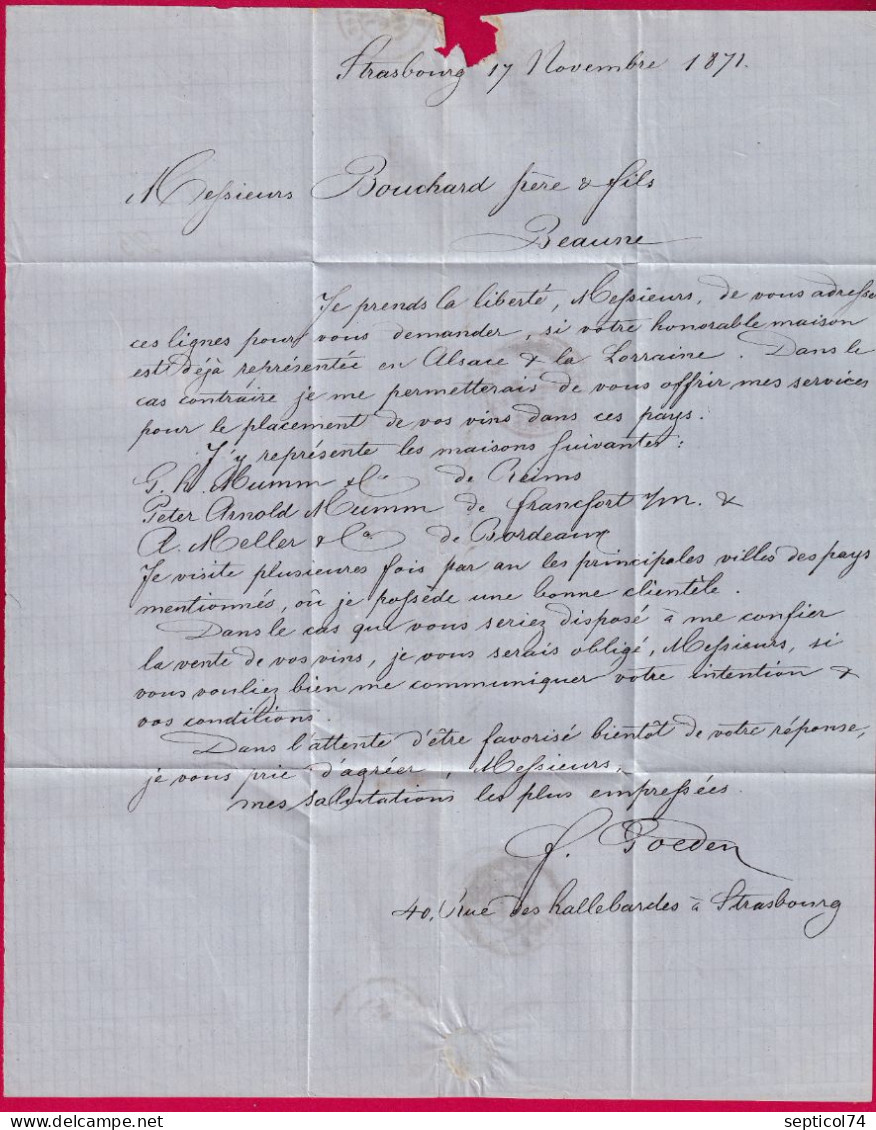 Strasbourg 17 Novembre 1871.
Messieurs Bouchard père & fils
Beaune
Je prends la liberté, Messieurs, de vous adresser
ces lignes pour vous demander, si votre honorable maison
est déjà représentée en Alsace & la Lorraine. Dans le
cas contraire je me permetterais de vous offrir mes services
pour le placement de vos vins dans ces pays.
J'y représente les maisons suivantes:
G. h. Mumm & Co de Reims
Peter Arnold Mumm de francfort s/m. &
A. Meller & Co de Bordeaux
Je visite plusieures fois par an les principales villes des pays
mentionnés, où je possède une bonne clientèle.
Dans le cas que vous seriez disposé à me confier
la vente de vos vins, je vous serais obligé, Messieurs, si
vous vouliez bien me communiquer votre intention &
vos conditions.
Dans l'attente d'être favorisé bientôt de votre réponse,
je vous prie d'agréer, Messieurs,
mes salutations les plus empressées.
40, Rue des hallebardes à Strasbourg
delcampe.net
septicol74